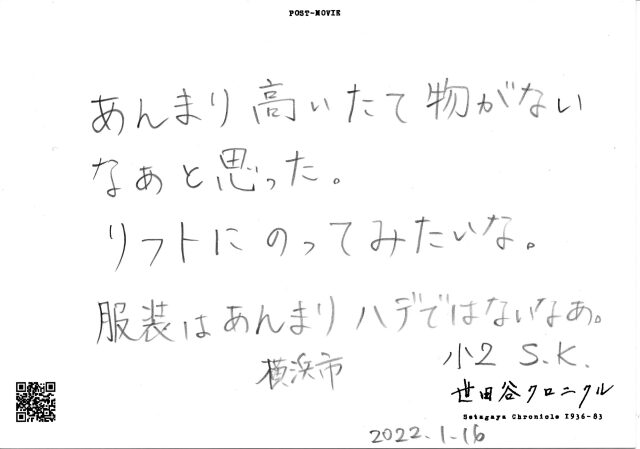 POST-MOVIE
あんまり高いたて物がない
なぁと思った。
リフトにのってみたいな。
服装はあんまりハデではないなあ。
横浜市
小2 S.K.
世田谷クロニクル
Setagaya Chronicle 1936-83
2022.1.16